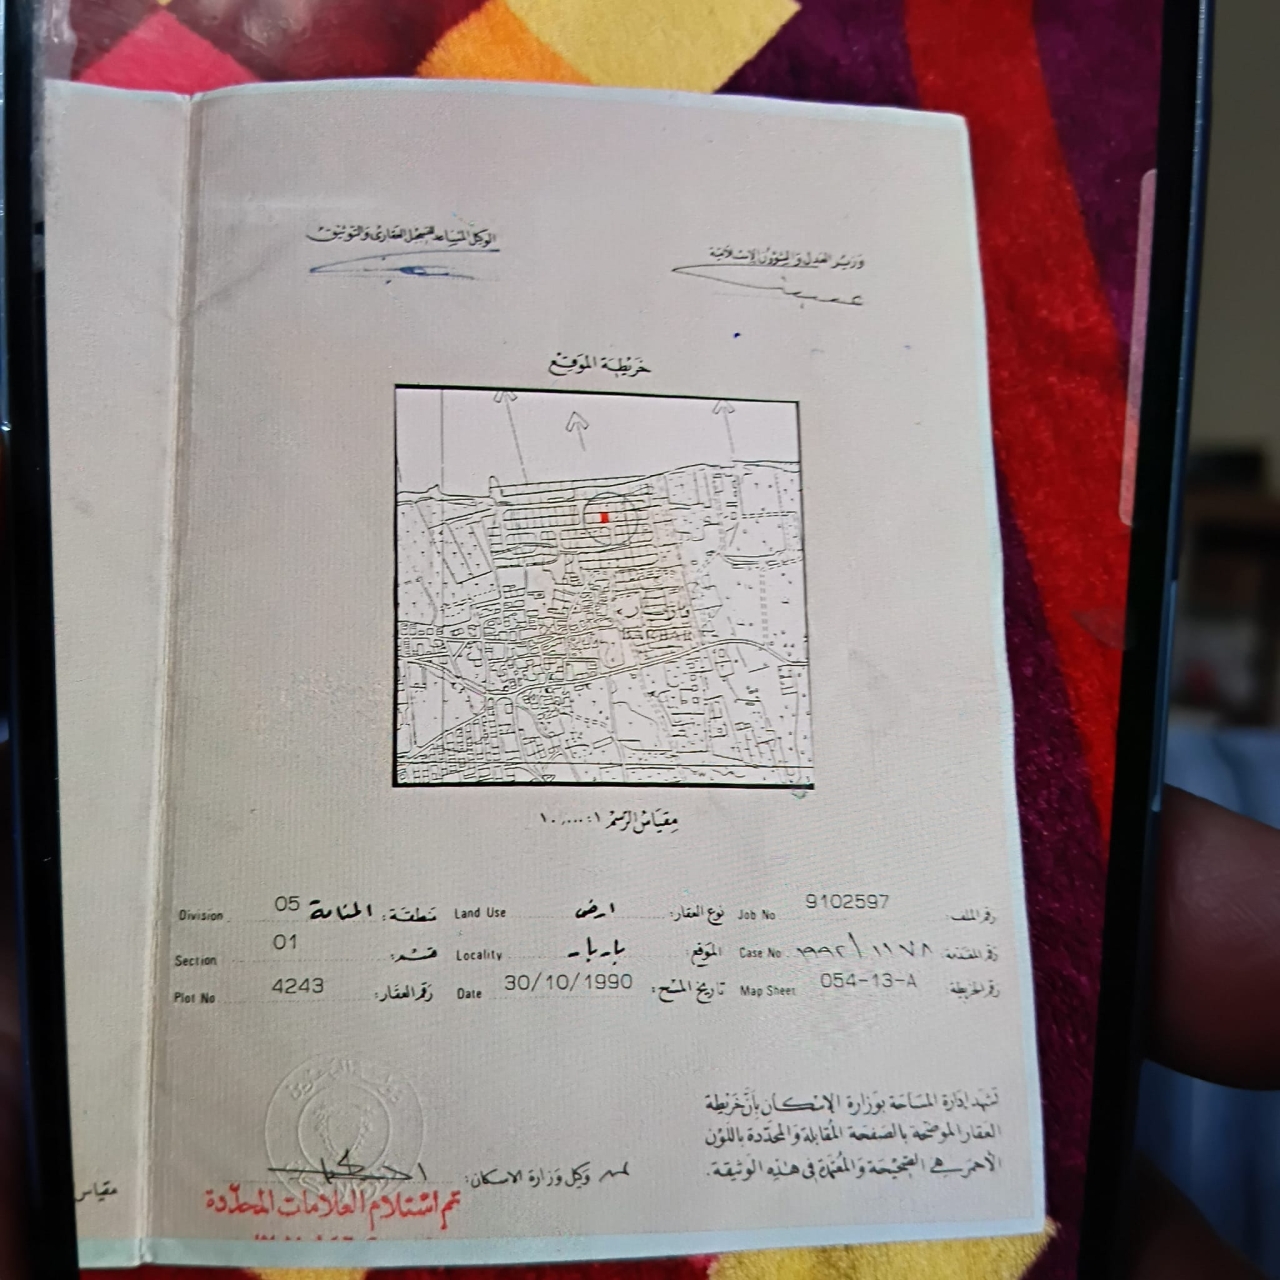 وزير العدل والشؤون الإسلامية
الوكيل المساعد للتسجيل العقاري والتوثيق
خريطة الموقع
مقياس الرسم ١ : ١٠,٠٠٠
رقم الملف: 9102597 Job No نوع العقار: ارض Land Use منطقة: المنامة 05 Division
رقم المقدمة: ١١٧٨ / ١٩٩٢ Case No الموقع: باربار Locality قسم: 01 Section
رقم الخريطة: 054-13-A Map Sheet تاريخ المسح: 30/10/1990 Date رقم العقار: 4243 Plot No
تشهد إدارة المساحة بوزارة الإسكان بأن خريطة
العقار الموضحة بالصفحة المقابلة والمحددة باللون
الأحمر هي الصحيحة والمعتمدة في هذه الوثيقة.
وكيل وزارة الاسكان:
تم استلام العلامات المحددة
مقياس